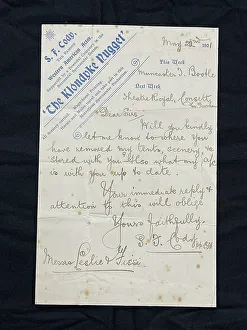 S. F. Cody.
The Famous
Western American Actor
'The Klondyke Nugget'
May 22nd 1901
This Week
Muncaster T. Bootle
Next Week
Theatre Royal, Consett
Dear Sirs
Will you kindly
let me know to where you
have removed my tents, scenery, etc
stored with you Also what my a/c
is with you up to date.
Your immediate reply &
attention to this will oblige
Yours faithfully.
S. F. Cody
Messrs Leslie &